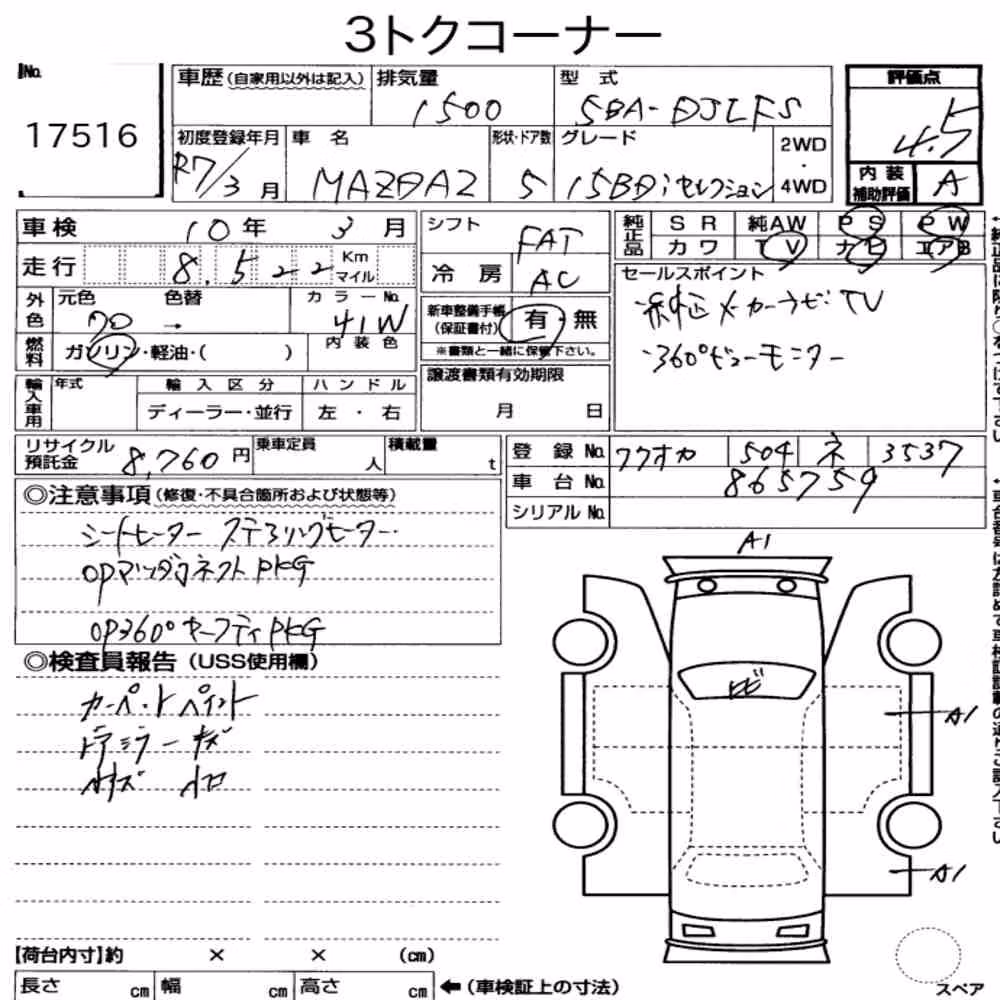 3トクコーナー
No. 17516
車歴(自家用以外は記入) 排気量 1500 型式 5BA-DJLFS
評価点 4.5
内装補助評価 A
初度登録年月 R7/3月 車名 MAZDA2 形状・ドア数 5 グレード 15BDiセレクション 2WD・4WD
車検 10年 3月
走行 8,522 Km マイル
外色 元色 色替 → カラーNo. 41W
燃料 ガソリン・軽油・( ) 内装色
輸入車用 年式 輸入区分 ハンドル
ディーラー・並行 左・右
シフト FAT
冷房 AC
新車整備手帳(保証書付) 有・無
※書類と一緒に保管下さい。
譲渡書類有効期限
月 日
純正品 SR 純AW PS PW
カワ TV ナビ エアB
セールスポイント
・純正メーカーナビTV
・360°ビューモニター
リサイクル預託金 8,760円 乗車定員 人 積載量 t
登録No. フクオカ 504 ネ 3537
車台No. 865759
シリアルNo.
◎注意事項(修復・不具合箇所および状態等)
シートヒーター ステアリングヒーター
OPマツダコネクトPKG
OP360°セーフティPKG
◎検査員報告(USS使用欄)
カーペットペイント
ドアミラーキズ
小キズ 小凹
A1
A1
A1
スペア
【荷台内寸】約 × × (cm)
長さ cm 幅 cm 高さ cm ←(車検証上の寸法)